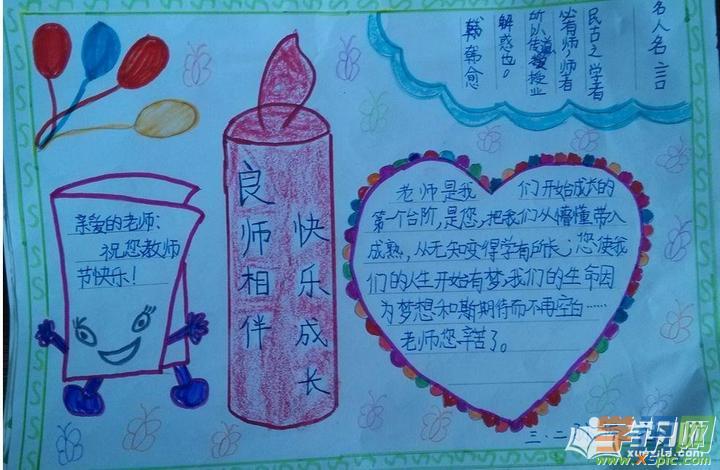 名人名言
民古之学者
必有师,师者
所以传道授业
解惑也。
韩韩愈
亲爱的老师:
祝您教师
节快乐!
良师相伴
快乐成长
老师是我 们开始成长的
第一个台阶,是您,把我们从懵懂带入
成熟,从无知变得学有所长;您使我
们的人生开始有梦,我们的生命因
为梦想和斯期待而不再空白……
老师您辛苦了。
三.二
学习网
www.x5pic.com